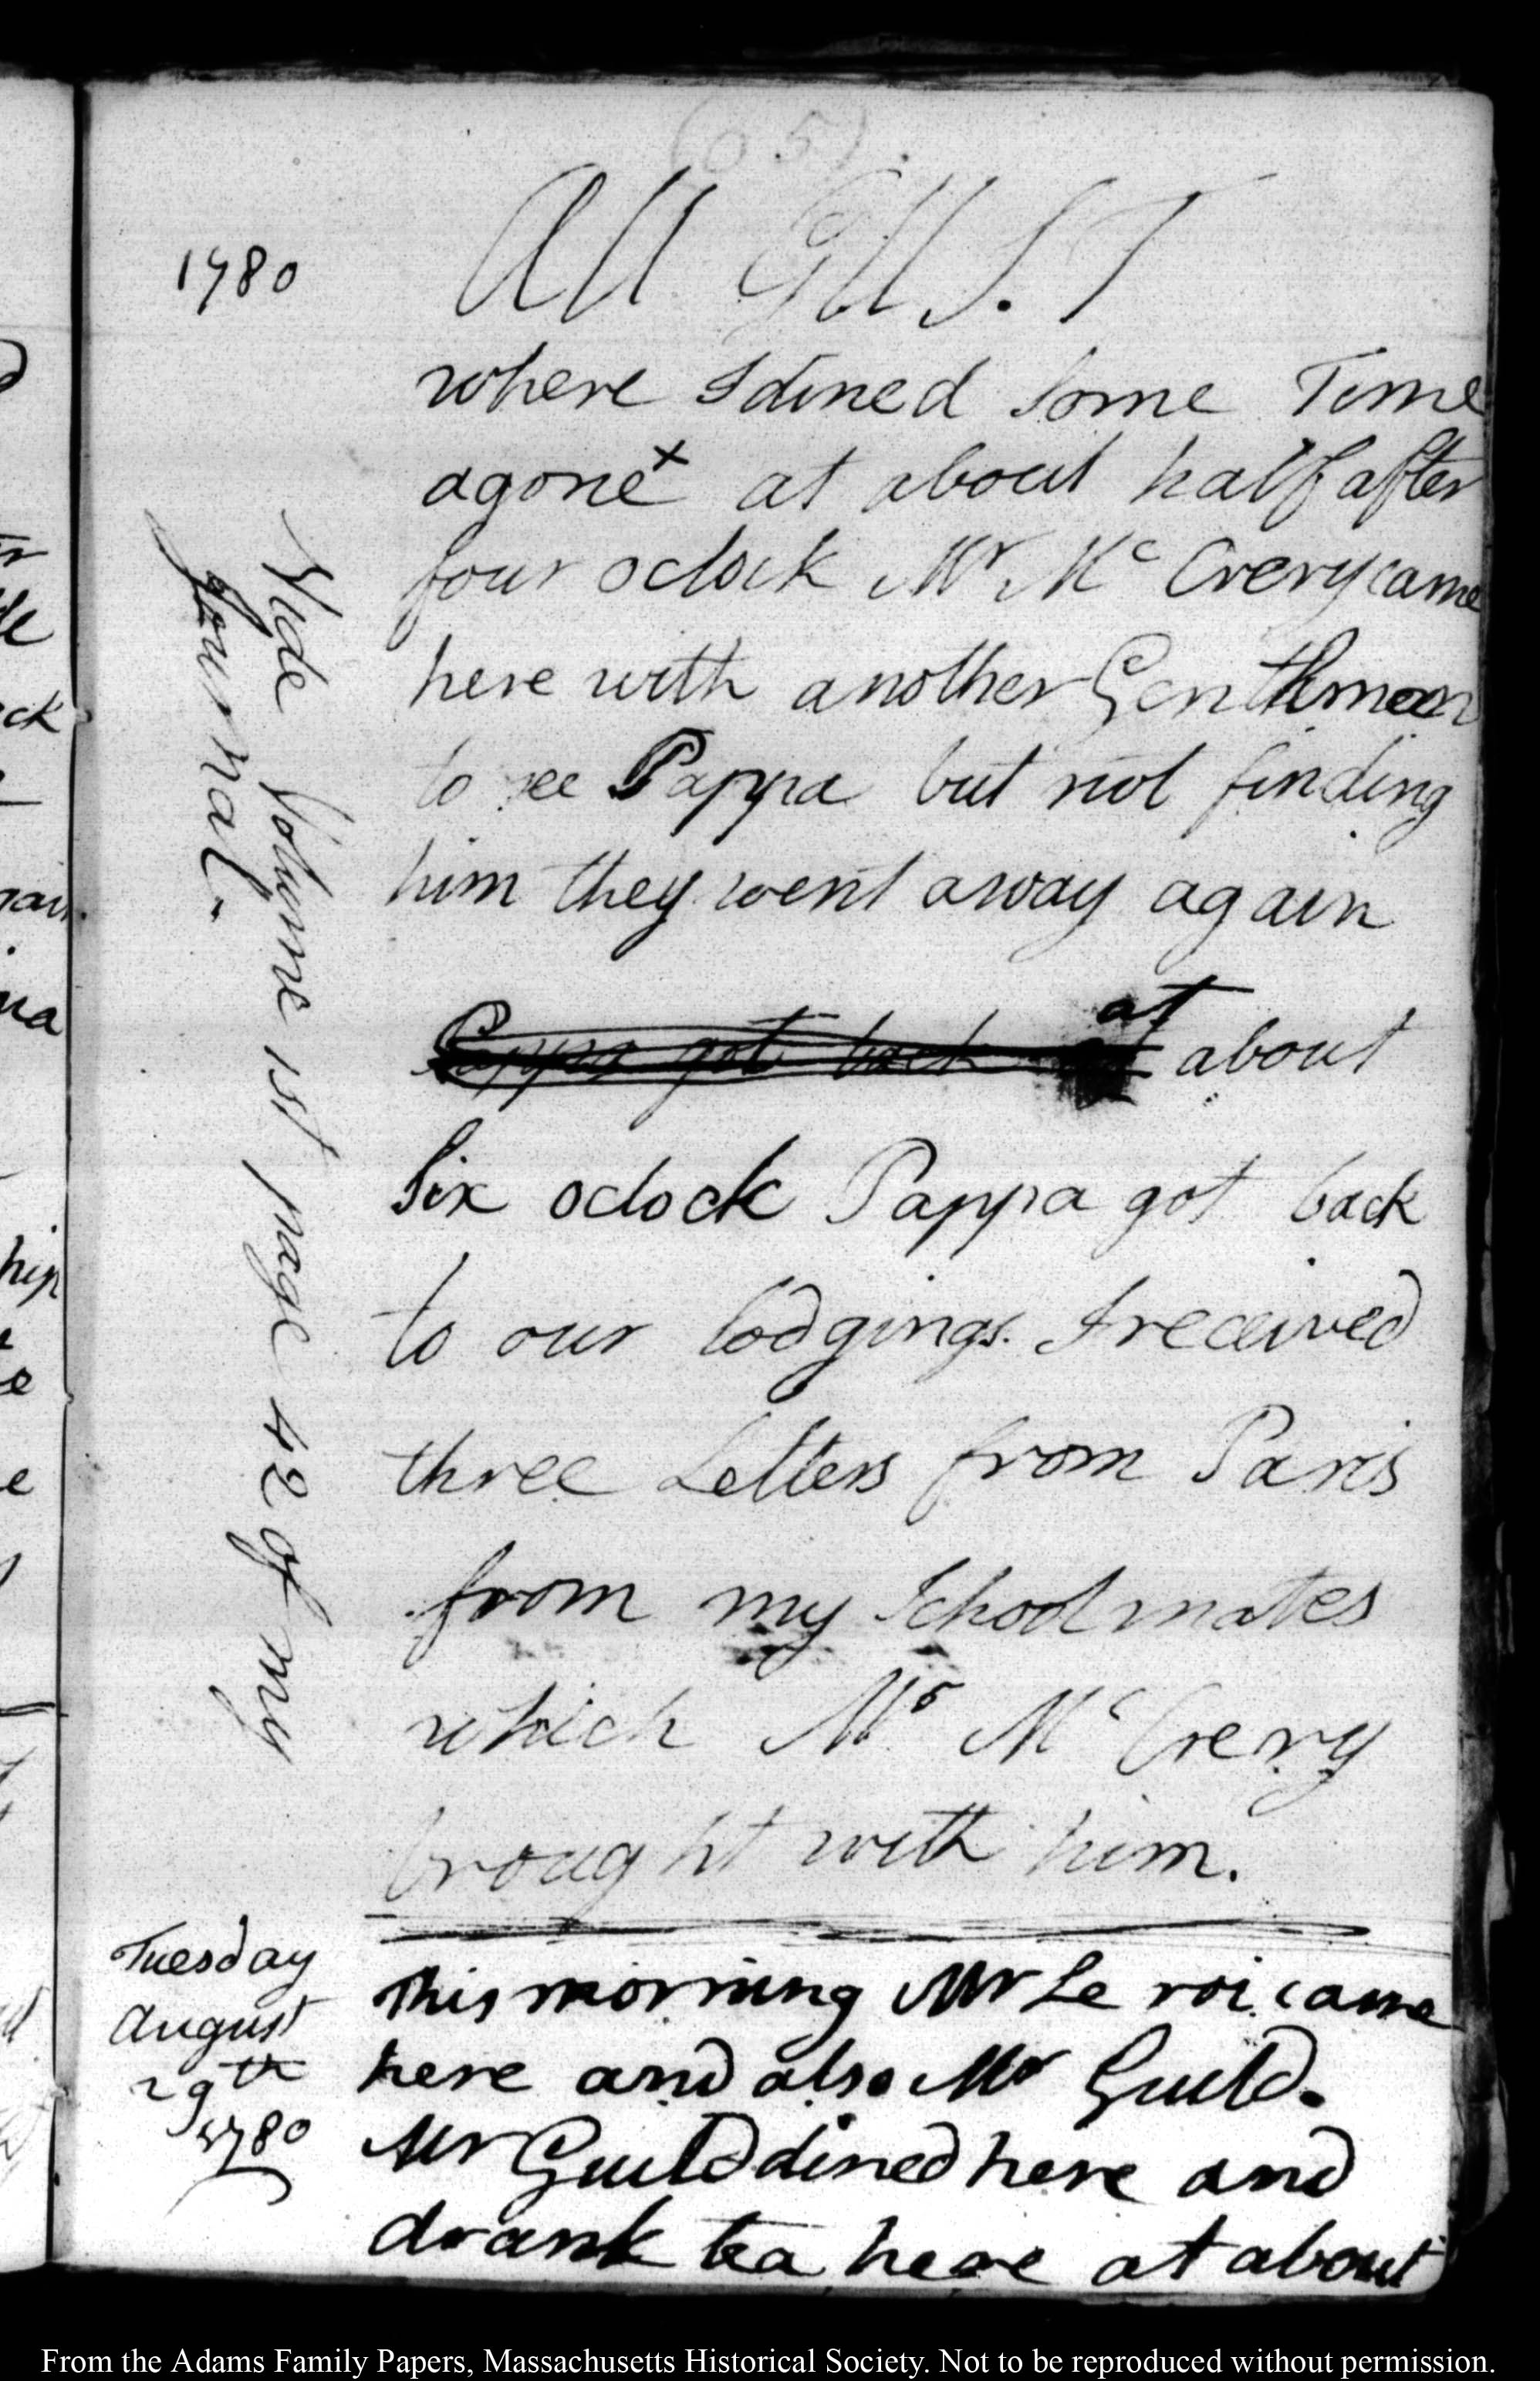 (65)
1780
AUGUST
where I dined some Time
agone x at about half after
four oclock Mr. Mc Crery came
here with another Gentleman
to see Pappa but not finding
him they went away again
Pappa got back at about
Six oclock Pappa got back
to our lodgings. I received
three Letters from Paris
from my Schoolmates
which Mr Mc Crery
brought with him.
x Vide Volume 1st page 42 of my
Journal.
Tuesday
August
29th
1780
This morning Mr Le roi came
here and also Mr Guild.
Mr Guild dined here and
drank tea here at about
From the Adams Family Papers, Massachusetts Historical Society. Not to be reproduced without permission.